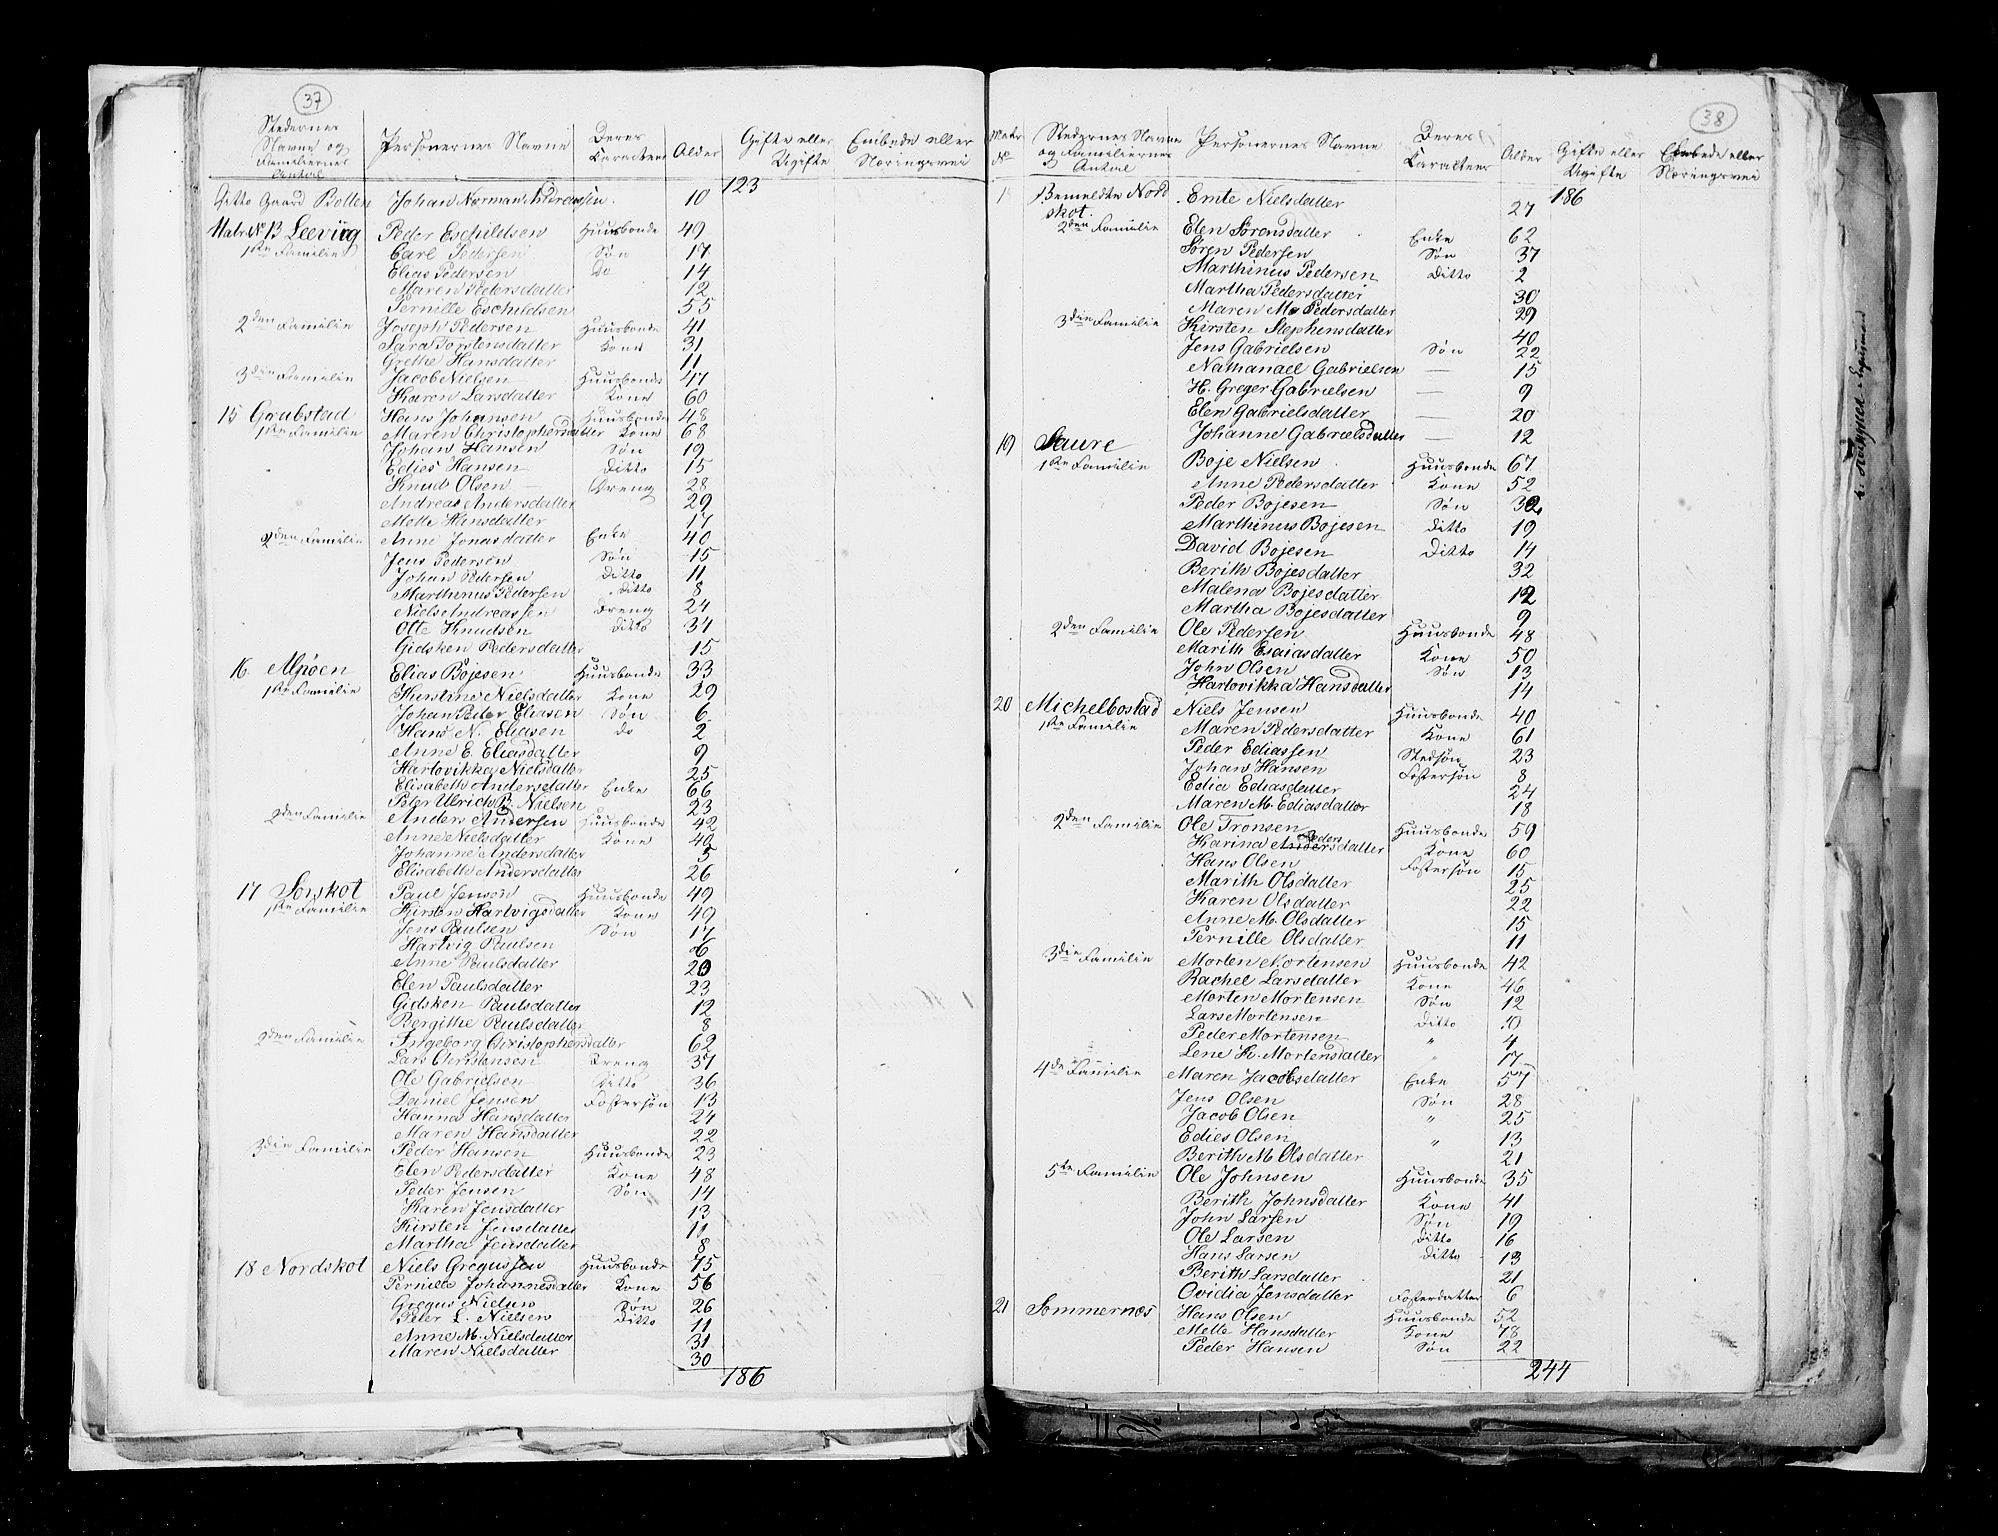 37
Stedernes Navne og Familiernes Antal | Personernes Navne | Deres Caracteer | Alder | Gifte eller Ugifte | Embede eller Næringsvei
123
Ditto Gaard Bolten Johan Norman Andreassen 10
Matr. No 13 Leeviig Peder Eschildsen Huusbonde 49
1ste Familie Carl Pedersen Søn 17
Elias Pedersen Do 14
Maren Pedersdatter 12
Pernille Eschildsen 55
2den Familie Joseph Pedersen Huusbonde 41
Sara Torstensdatter Kone 31
Grethe Hansdatter 11
3die Familie Jacob Nielsen Huusbonde 47
Karen Larsdatter Kone 60
15 Grubstad Hans Johansen Huusbonde 48
1ste Familie Maren Christophersdatter Kone 68
Johan Hansen Søn 19
Edies Hansen Ditto 15
Knud Olsen Dreng 28
Andreas Andersdatter 29
Mette Hansdatter 17
2den Familie Anne Jonasdatter Enke 40
Jens Pedersen Søn 15
Johan Pedersen Ditto 11
Marthinus Pedersen Ditto 8
Niels Andreassen Dreng 24
Olte Knudsen Ditto 34
Gidsken Pedersdatter 15
16 Alpøen Elias Bojesen Huusbonde 33
1ste Familie Kirstine Nielsdatter Kone 29
Johan Peder Eliasen Søn 6
Hans N. Eliasen do 2
Anne E. Eliasdatter 9
Hartvikka Nielsdatter 25
Elisabeth Andersdatter Enke 66
Peter Ulrich B. Nielsen 23
2den Familie Anders Andersen Huusbonde 42
Anne Nielsdatter Kone 40
Johanne Andersdatter 5
Elisabeth Andersdatter 26
17 Sørskot Paul Jensen Huusbonde 49
1ste Familie Kirsten Hartvigsdatter Kone 49
Jens Paulsen Søn 17
Hartvig Paulsen 6
Anne Paulsdatter 20
Elen Paulsdatter 23
Gidsken Paulsdatter 12
Bergithe Paulsdatter 8
2den Familie Ingeborg Christophersdatter 62
Lars Christensen Dreng 37
Ole Gabrielsen Ditto 36
Daniel Jensen Fostersøn 13
Hanna Hansdatter 24
Maren Hansdatter 22
3die Familie Peder Hansen Huusbonde 23
Elen Pedersdatter Kone 48
Peder Jensen Søn 14
Karen Jensdatter 13
Kirsten Jensdatter 11
Martha Jensdatter 8
18 Nordskot Niels Gregussen Huusbonde 75
Pernille Johannesdatter Kone 56
Gregus Nielsen Søn 26
Peter L. Nielsen Ditto 11
Anne M. Nielsdatter 31
Maren Nielsdatter 30
186
38
Matr No | Stedernes Navne og Familiernes Antal | Personernes Navne | Deres Caracteer | Alder | Gifte eller Ugifte | Embede eller Næringsvei
186
Bemeldte Nordskot. Emte Nielsdatter 27
2den Familie Elen Sørensdatter Enke 62
Søren Pedersen Søn 37
Marthinus Pedersen Ditto 2
Martha Pedersdatter 30
Maren M. Pedersdatter 29
3die Familie Kirsten Stephensdatter 40
Jens Gabrielsen Søn 22
Nathanael Gabrielsen — 15
H. Greger Gabrielsen — 9
Elen Gabrielsdatter — 20
Johanne Gabrielsdatter — 12
19 Saure
1ste Familie Boje Nielsen Huusbonde 67
Anne Pedersdatter Kone 52
Peder Bojesen Søn 30
Marthinus Bojesen Ditto 19
David Bojesen Ditto 14
Berith Bojesdatter 32
Malena Bojesdatter 12
Martha Bojesdatter 9
2den Familie Ole Pedersen Huusbonde 48
Marith Esaiasdatter Kone 50
John Olsen Søn 13
Hartovikka Hansdatter 14
20 Michelbostad Niels Jensen Huusbonde 40
1ste Familie Maren Pedersdatter Kone 61
Peder Ediassen Stedsøn 23
Johan Hansen Fostersøn 8
Edia Ediasdatter 24
Maren M. Ediasdatter 18
2den Familie Ole Tronsen Huusbonde 59
Karina Anders Peders datter Kone 60
Hans Olsen Fostersøn 15
Marith Olsdatter 25
Karen Olsdatter 22
Anne M. Olsdatter 15
Pernille Olsdatter 11
3die Familie Morten Mortensen Huusbonde 42
Rachel Larsdatter Kone 46
Morten Mortensen Søn 12
Lars Mortensen Ditto 10
Peder Mortensen " 4
Lene K. Mortensdatter " 17
4de Familie Maren Jacobsdatter Enke 57
Jens Olsen Søn 28
Jacob Olsen " 25
Edies Olsen " 13
Berith M. Olsdatter 21
5te Familie Ole Johnsen Huusbonde 35
Berith Johnsdatter Kone 41
John Larsen Søn 19
Ole Larsen Ditto 16
Hans Larsen Ditto 13
Berith Larsdatter 21
Ovidia Jensdatter Fosterdatter 6
21 Sommernæs Hans Olsen Huusbonde 52
Mette Hansdatter Kone 78
Peder Hansen Søn 22
244